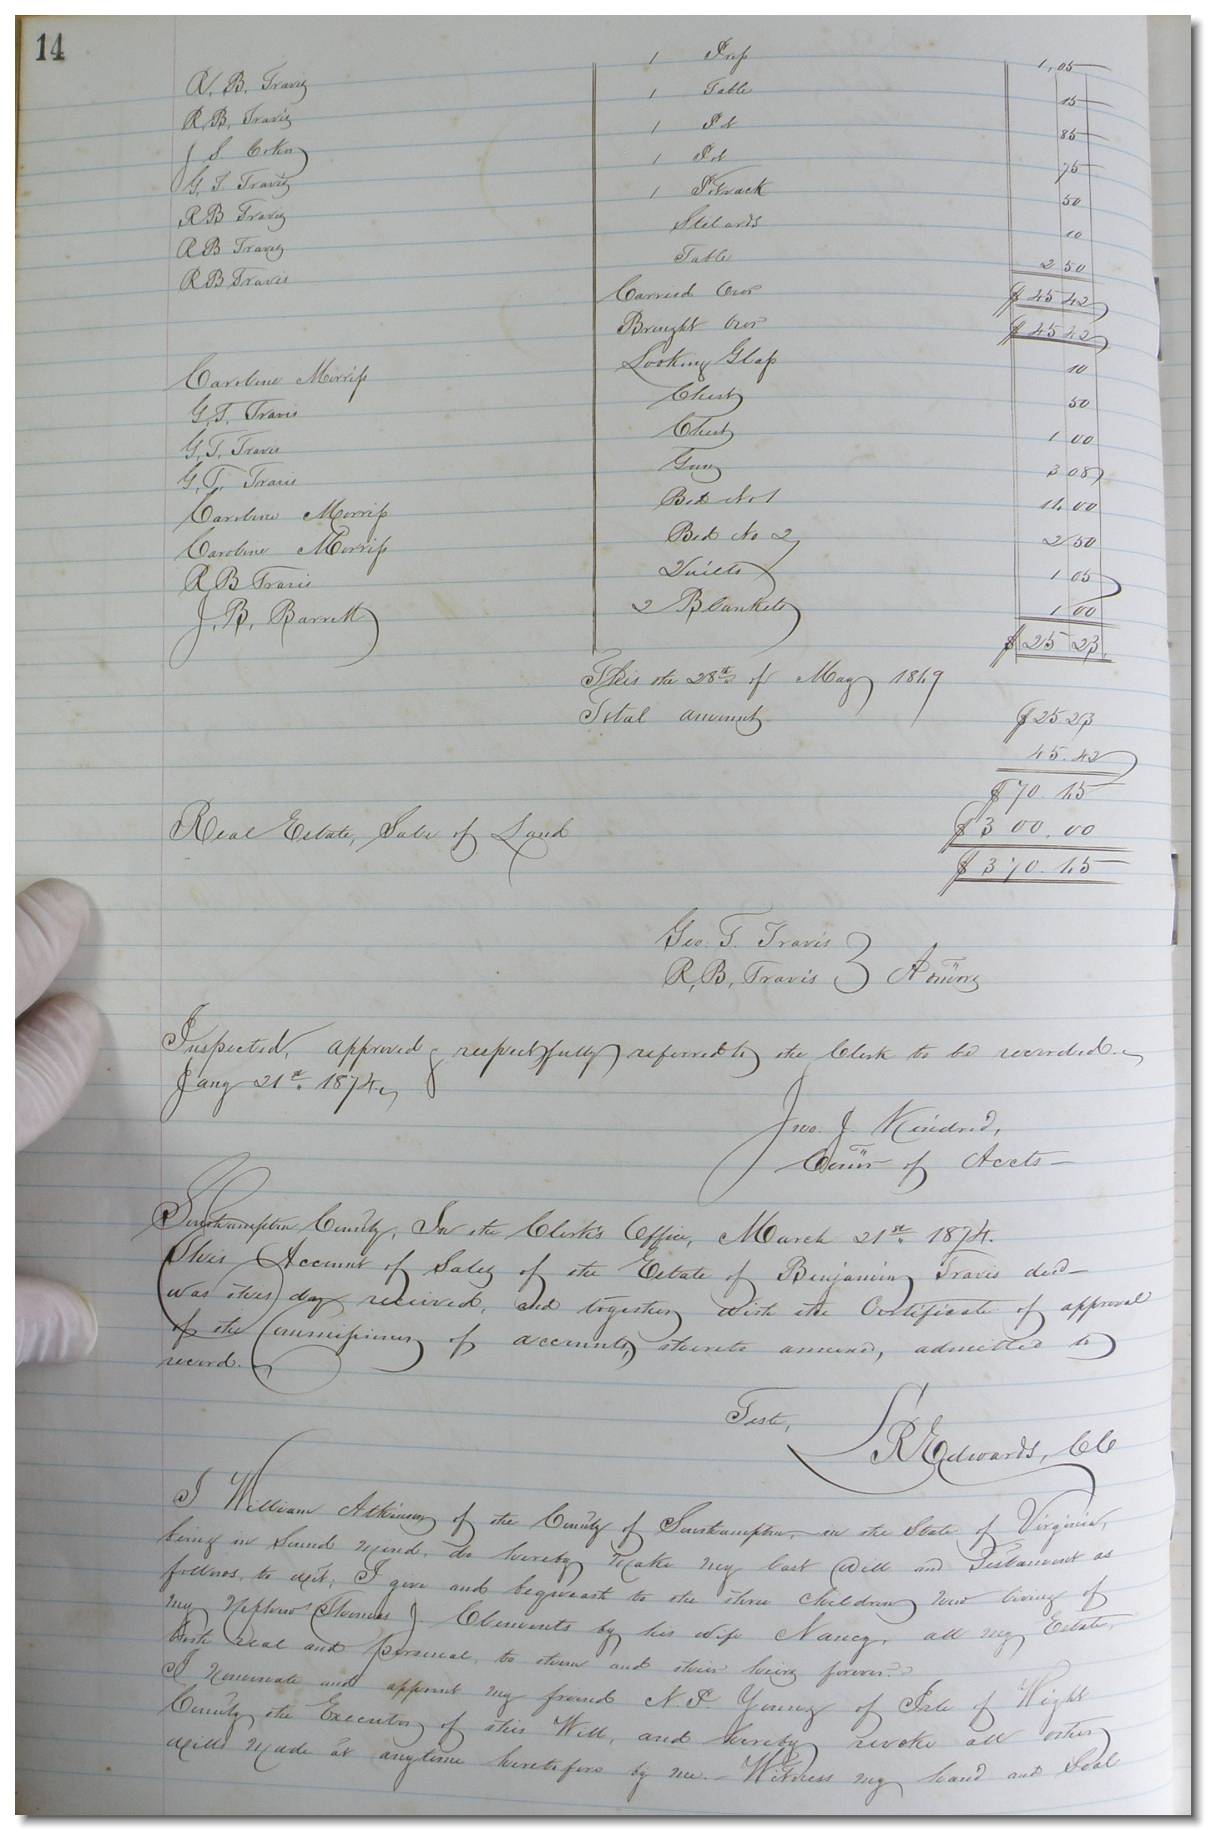 14
R. B. Travis 1 Prep 1.05
R. B. Travis 1 Table 15
J S 1 Pot 85
G. T Travis 1 Pot 75
R B Travis 1 50
R B Travis Stilards 10
R B Travis Table 2 50
Carried Over $45 42
Brought Over $45 42
Caroline Morriss Looking Glass 10
G. T. Travis Chest 50
G. T. Travis Chest 1 00
G. T. Travis Gun 3 08
Caroline Morriss Bed No 1 00
Caroline Morriss Bed No 2 2 50
R B Travis Quilts 1 05
J. B. Barrett 2 Blankets 1 00
$25 23
This the 28th of May 1869
Total amount $25 23
45.42
$70.65
Real Estate, Sale of Land $300.00
$370.65
Geo. T. Travis
R. B. Travis } Admors
Inspected, approved & respectfully referred to the Clerk to be recorded.
Jany 21st 1874.
Jno. J. Kindred,
Comr of Accts
Southampton County, In the Clerk's Office, March 21st 1874.
This Account of Sales of the Estate of Benjamin Travis decd
was this day received, and together with the Certificate of approval
of the Commissioner of accounts, thereto annexed, admitted to
record.
Teste, L R Edwards, CC
I William Atkinson of the County of Southampton, in the State of Virginia,
being in Sound Mind, do hereby Make my last Will and Testament as
follows, to wit; I give and bequeath to the three children now living of
my Nephew Thomas J. Clements by his wife Nancy, all my Estate,
both real and personal, to them and their heirs forever.
I Nominate and appoint my friend N. P. Young of Isle of Wight
County the Executor of this Will, and hereby revoke all other
Wills Made at anytime heretofore by me. - Witness my hand and Seal